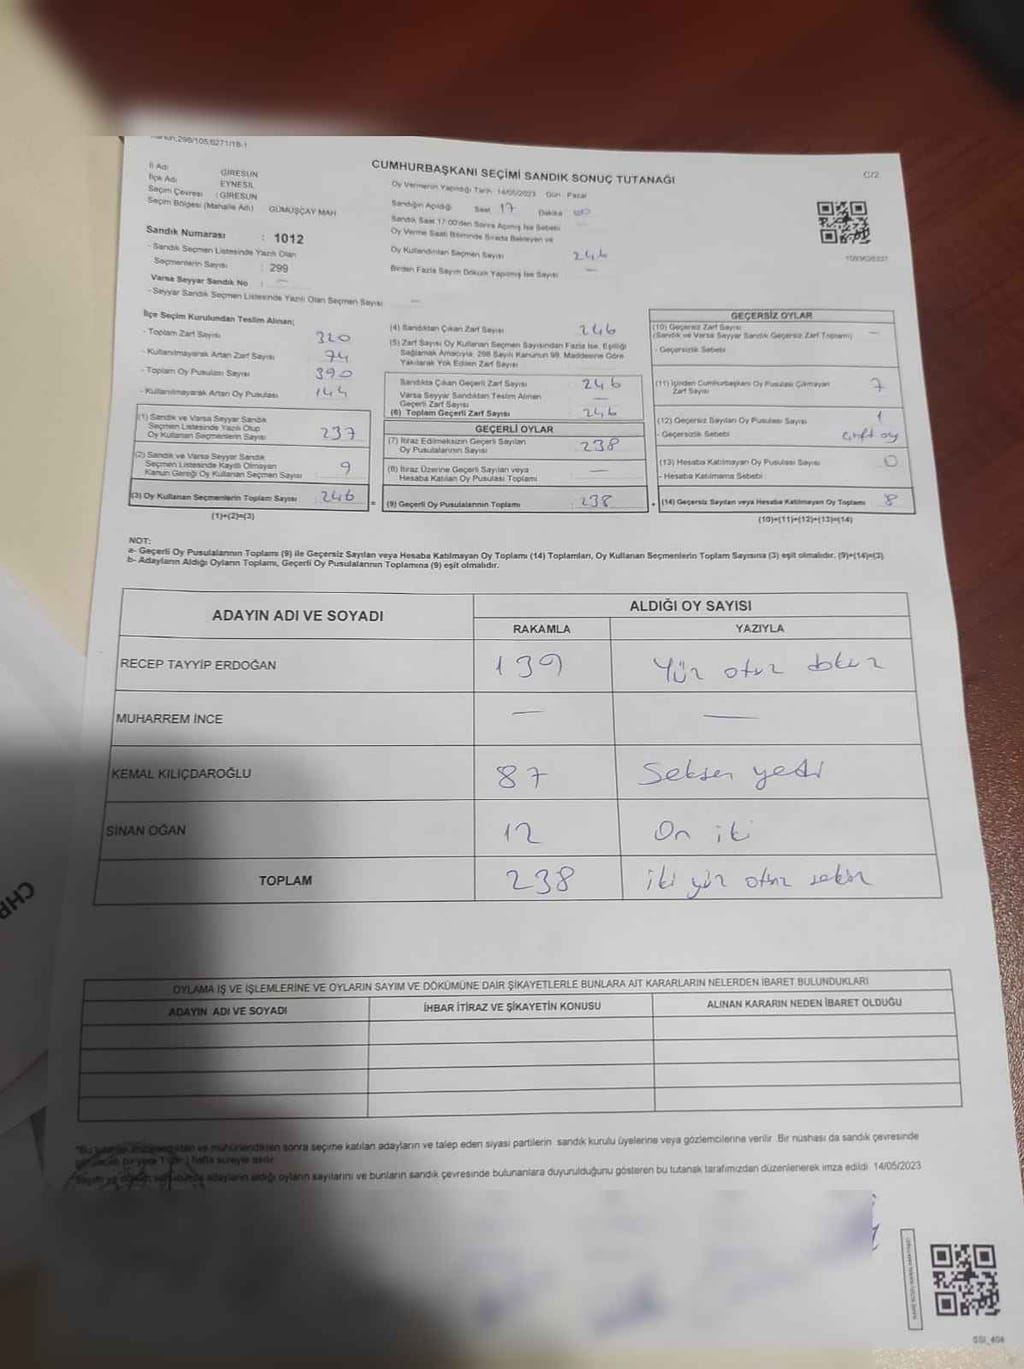 CUMHURBAŞKANI SEÇİMİ SANDIK SONUÇ TUTANAĞI
C/2
İl Adı : GİRESUN
İlçe Adı : EYNESİL
Seçim Çevresi : GİRESUN
Seçim Bölgesi (Mahalle Adı) GÜMÜŞÇAY MAH
Oy Vermenin Yapıldığı Tarih: 14/05/2023 Gün: Pazar
Sandığın Açıldığı Saat 17 Dakika 00
Sandık Saat 17:00'den Sonra Açılmış İse Sebebi
Oy Verme Saati Bitiminde Sırada Bekleyen ve
Oy Kullandırılan Seçmen Sayısı 246
Birden Fazla Sayım Döküm Yapılmış İse Sayısı —
Sandık Numarası : 1012
- Sandık Seçmen Listesinde Yazılı Olan
Seçmenlerin Sayısı : 299
Varsa Seyyar Sandık No : —
- Seyyar Sandık Seçmen Listesinde Yazılı Olan Seçmen Sayısı —
İlçe Seçim Kurulundan Teslim Alınan;
- Toplam Zarf Sayısı 320
- Kullanılmayarak Artan Zarf Sayısı 74
- Toplam Oy Pusulası Sayısı 390
- Kullanılmayarak Artan Oy Pusulası 144
(1) Sandık ve Varsa Seyyar Sandık
Seçmen Listesinde Yazılı Olup
Oy Kullanan Seçmenlerin Sayısı 237
(2) Sandık ve Varsa Seyyar Sandık
Seçmen Listesinde Kayıtlı Olmayan
Kanun Gereği Oy Kullanan Seçmen Sayısı 9
(3) Oy Kullanan Seçmenlerin Toplam Sayısı 246
(1)+(2)=(3)
(4) Sandıktan Çıkan Zarf Sayısı 246
(5) Zarf Sayısı Oy Kullanan Seçmen Sayısından Fazla İse, Eşitliği
Sağlamak Amacıyla, 298 Sayılı Kanunun 98. Maddesine Göre
Yakılarak Yok Edilen Zarf Sayısı
Sandıkta Çıkan Geçerli Zarf Sayısı 246
Varsa Seyyar Sandıktan Teslim Alınan
Geçerli Zarf Sayısı —
(6) Toplam Geçerli Zarf Sayısı 246
GEÇERLİ OYLAR
(7) İtiraz Edilmeksizin Geçerli Sayılan
Oy Pusulalarının Sayısı 238
(8) İtiraz Üzerine Geçerli Sayılan veya
Hesaba Katılan Oy Pusulası Toplamı —
= (9) Geçerli Oy Pusulalarının Toplamı 238
GEÇERSİZ OYLAR
(10) Geçersiz Zarf Sayısı
(Sandık ve Varsa Seyyar Sandık Geçersiz Zarf Toplamı) —
- Geçersizlik Sebebi
(11) İçinden Cumhurbaşkanı Oy Pusulası Çıkmayan
Zarf Sayısı 7
(12) Geçersiz Sayılan Oy Pusulası Sayısı 1
- Geçersizlik Sebebi çift oy
(13) Hesaba Katılmayan Oy Pusulası Sayısı 0
- Hesaba Katılmama Sebebi
+ (14) Geçersiz Sayılan veya Hesaba Katılmayan Oy Toplamı 8
(10)+(11)+(12)+(13)=(14)
NOT:
a- Geçerli Oy Pusulalarının Toplamı (9) ile Geçersiz Sayılan veya Hesaba Katılmayan Oy Toplamı (14) Toplamları, Oy Kullanan Seçmenlerin Toplam Sayısına (3) eşit olmalıdır. (9)+(14)=(3)
b- Adayların Aldığı Oyların Toplamı, Geçerli Oy Pusulalarının Toplamına (9) eşit olmalıdır.
ADAYIN ADI VE SOYADI
ALDIĞI OY SAYISI
RAKAMLA YAZIYLA
RECEP TAYYİP ERDOĞAN 139 Yüz otuz dokuz
MUHARREM İNCE — —
KEMAL KILIÇDAROĞLU 87 Seksen yedi
SİNAN OĞAN 12 On iki
TOPLAM 238 iki yüz otuz sekiz
CHP
OYLAMA İŞ VE İŞLEMLERİNE VE OYLARIN SAYIM VE DÖKÜMÜNE DAİR ŞİKAYETLERLE BUNLARA AİT KARARLARIN NELERDEN İBARET BULUNDUKLARI
ADAYIN ADI VE SOYADI İHBAR İTİRAZ VE ŞİKAYETİN KONUSU ALINAN KARARIN NEDEN İBARET OLDUĞU
sonra seçime katılan adayların ve talep eden siyasi partilerin sandık kurulu üyelerine veya gözlemcilerine verilir. Bir nüshası da sandık çevresinde
hafta süreyle asılır.
adayların aldığı oyların sayılarını ve bunların sandık çevresinde bulunanlara duyurulduğunu gösteren bu tutanak tarafımızdan düzenlenerek imza edildi. 14/05/2023